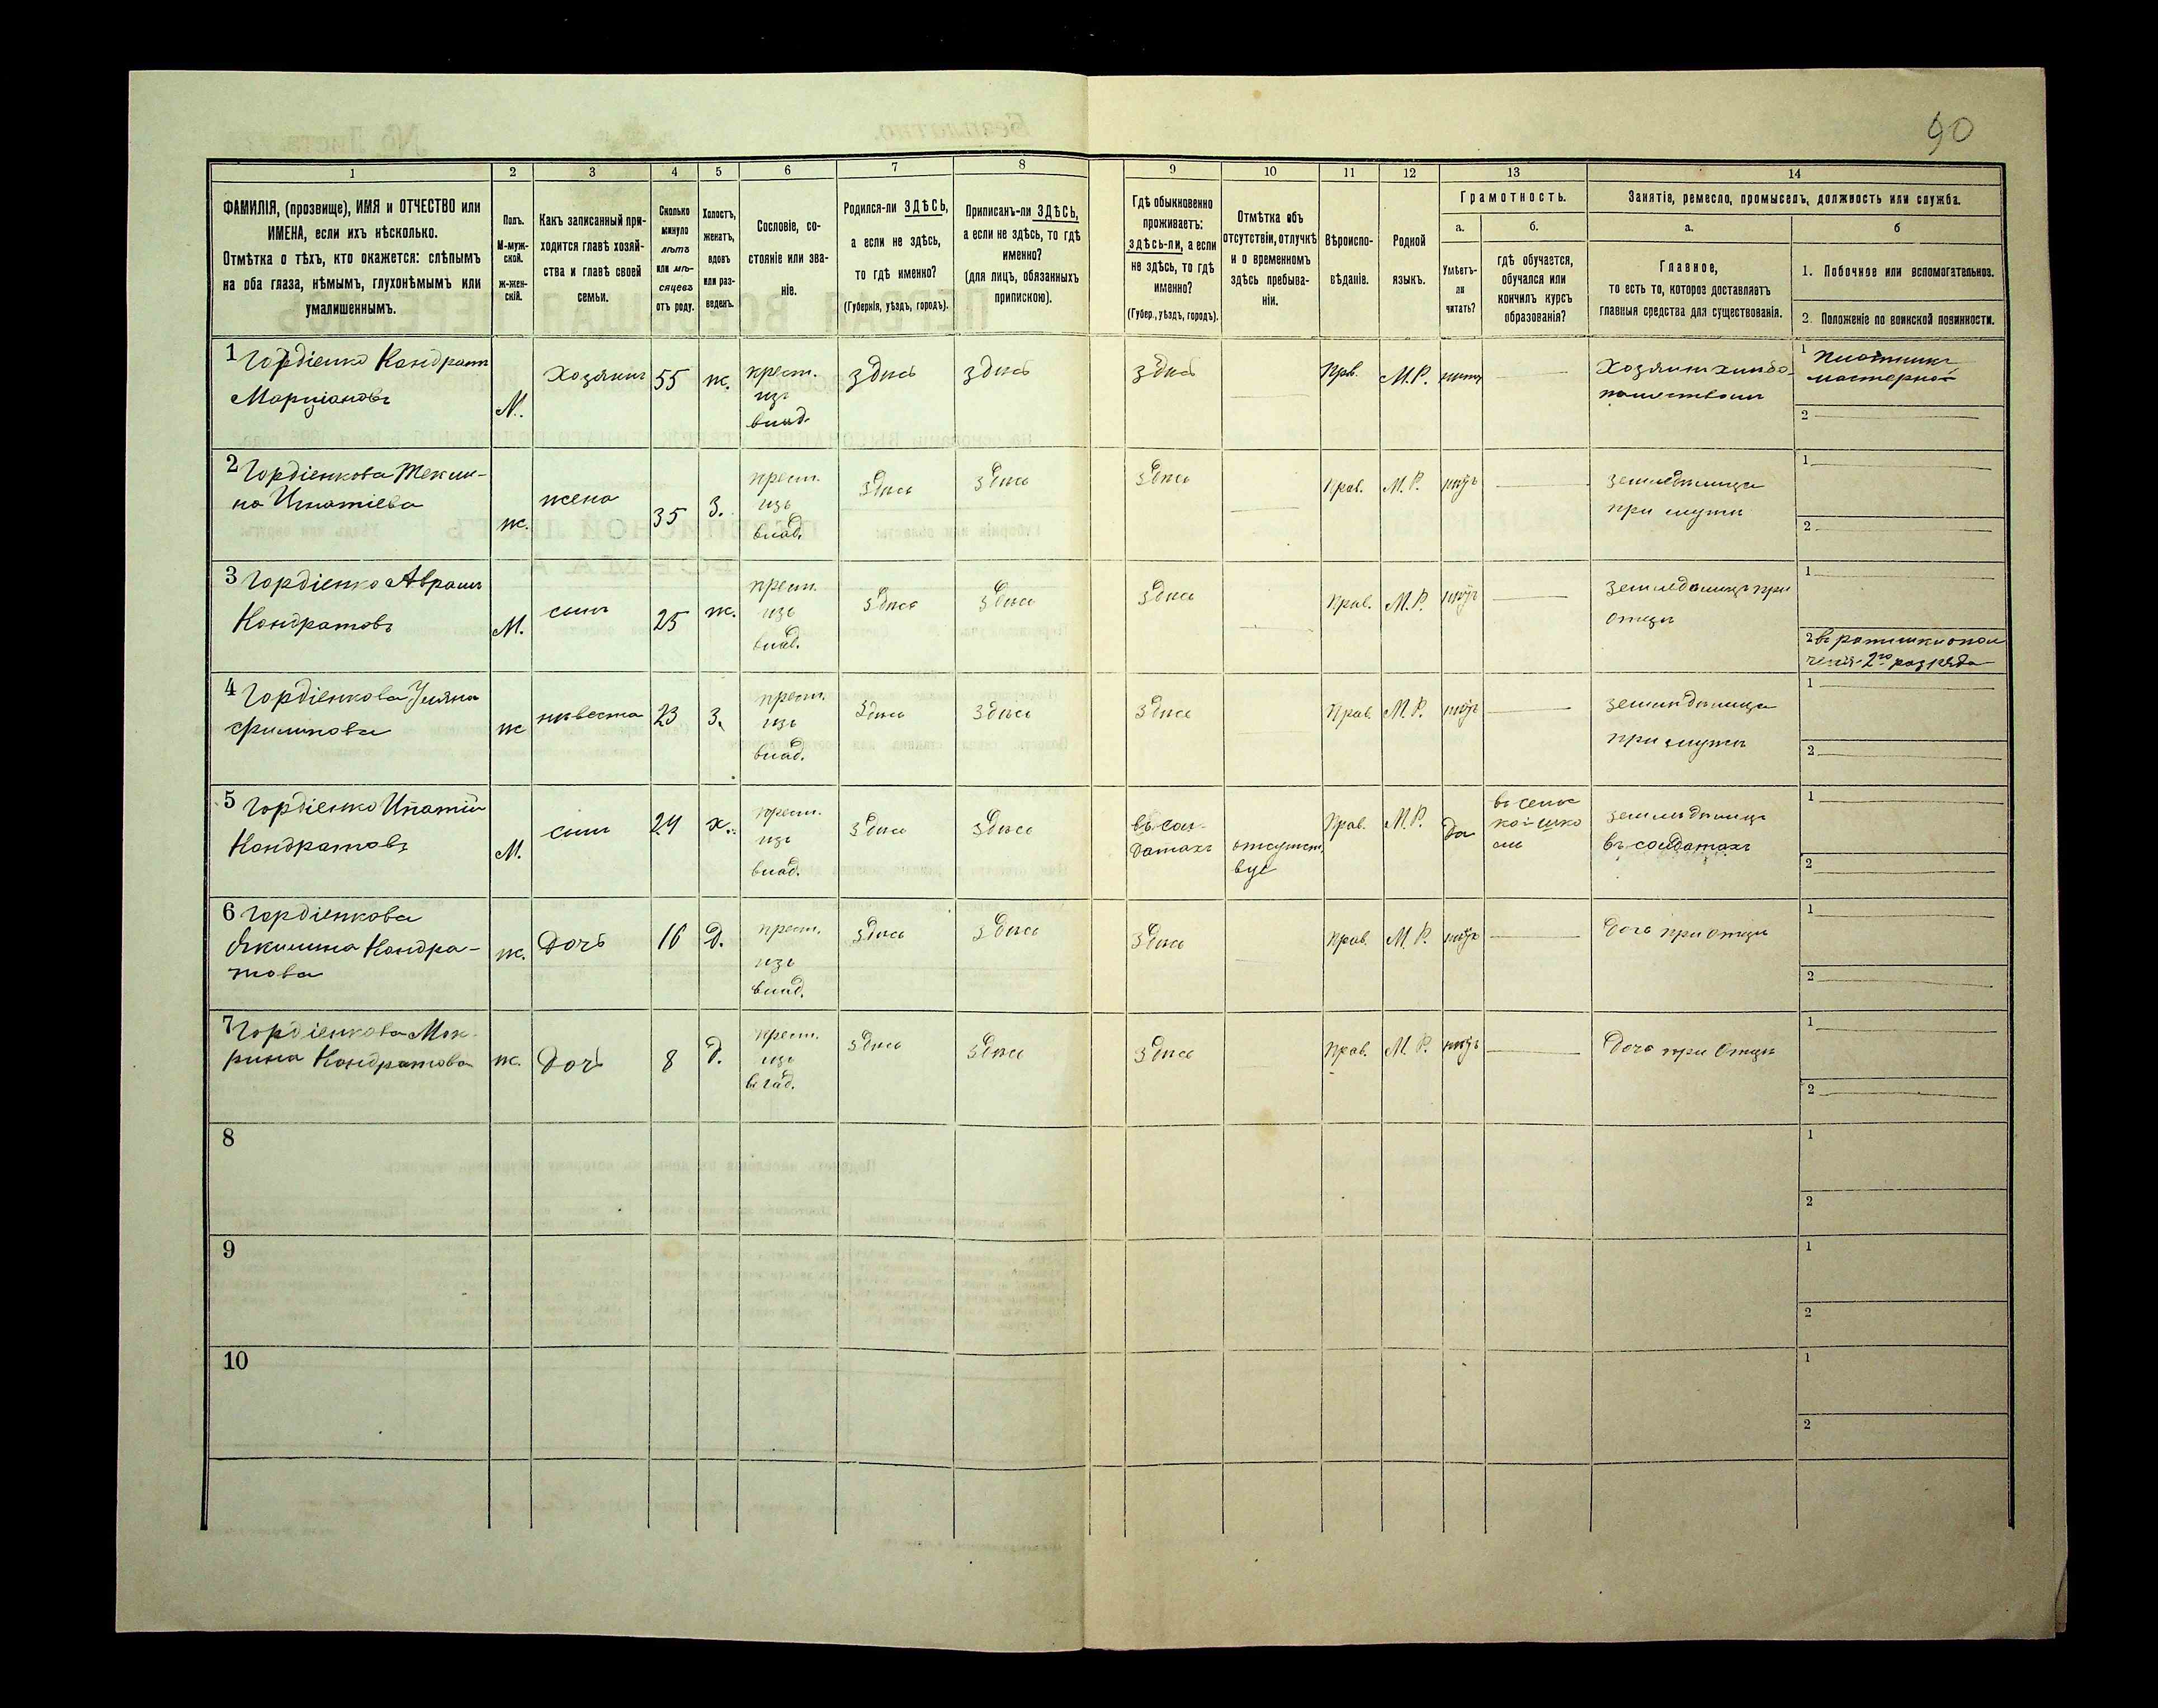 90
1 2 3 4 5 6 7 8 9 10 11 12 13 14
ФАМИЛІЯ, (прозвище), ИМЯ и ОТЧЕСТВО или
ИМЕНА, если ихъ нѣсколько.
Отмѣтка о тѣхъ, кто окажется: слѣпымъ
на оба глаза, нѣмымъ, глухонѣмымъ или
умалишеннымъ.
Полъ.
М-муж-
ской.
Ж-жен-
скій.
Какъ записанный при-
ходится главѣ хозяй-
ства и главѣ своей
семьи.
Сколько
минуло
лѣтъ
или мѣ-
сяцевъ
отъ роду.
Холостъ,
женатъ,
вдовъ
или раз-
веденъ.
Сословіе, со-
стояніе или зва-
ніе.
Родился-ли ЗДѢСЬ,
а если не здѣсь,
то гдѣ именно?
(Губернія, уѣздъ, городъ).
Приписанъ-ли ЗДѢСЬ,
а если не здѣсь, то гдѣ
именно?
(для лицъ, обязанныхъ
припискою).
Гдѣ обыкновенно
проживаетъ:
здѣсь-ли, а если
не здѣсь, то гдѣ
именно?
(Губер., уѣздъ, городъ).
Отмѣтка объ
отсутствіи, отлучкѣ
и о временномъ
здѣсь пребыва-
ніи.
Вѣроиспо-
вѣданіе.
Родной
языкъ.
Грамотность.
а.
Умѣетъ-
ли
читать?
б.
гдѣ обучается,
обучался или
кончилъ курсъ
образованія?
Занятіе, ремесло, промыселъ, должность или служба.
а.
Главное,
то есть то, которое доставляетъ
главныя средства для существованія.
б
1. Побочное или вспомогательное.
2. Положеніе по воинской повинности.
1 Гордіенко Кондратъ
Марціановъ
М.
Хозяинъ
55
ж.
крест.
изъ
влад.
здѣсь
здѣсь
здѣсь
Прв.
М.Р.
нѣтъ
Хозяинъ хлѣбо-
пашествомъ
1 Плотникъ
мастеровой
2
2 Гордіенкова Текли-
на Игнатіева
ж.
жена
35
З.
крест.
изъ
влад.
здѣсь
здѣсь
здѣсь
Прав.
М.Р.
нѣтъ
земледѣлица
при мужѣ
1
2
3 Гордіенко Аврамъ
Кондратовъ
М.
сынъ
25
ж.
крест.
изъ
влад.
здѣсь
здѣсь
здѣсь
Прав.
М.Р.
нѣтъ
земледѣлецъ при
отцѣ
1
2 въ ратники опол
ченія 2го разряда
4 Гордіенкова Уляна
Филипова
ж
нѣвеста
23
З.
крест.
изъ
влад.
здѣсь
здѣсь
здѣсь
Прав.
М.Р.
нѣтъ
земледѣлица
при мужѣ
1
2
5 Гордіенко Ипатій
Кондратовъ
М.
сынъ
24
х.
крест.
изъ
влад.
здѣсь
здѣсь
въ сол-
датахъ
отсутст
вуе
Прав.
М.Р.
да
въ сельс
кой шко
лѣ
земледѣлецъ
въ солдатахъ
1
2
6 Гордіенкова
Якилина Кондра-
това
ж.
Дочь
16
Д.
крест.
изъ
влад.
здѣсь
здѣсь
здѣсь
Прав.
М.Р.
нѣтъ
Дочь при отцѣ
1
2
7 Гордіенкова Мок-
рина Кондратова
ж.
Дочь
8
Д.
крест.
изъ
влад.
здѣсь
здѣсь
здѣсь
Прав.
М.Р.
нѣтъ
Дочь при Отцѣ
1
2
8
1
2
9
1
2
10
1
2